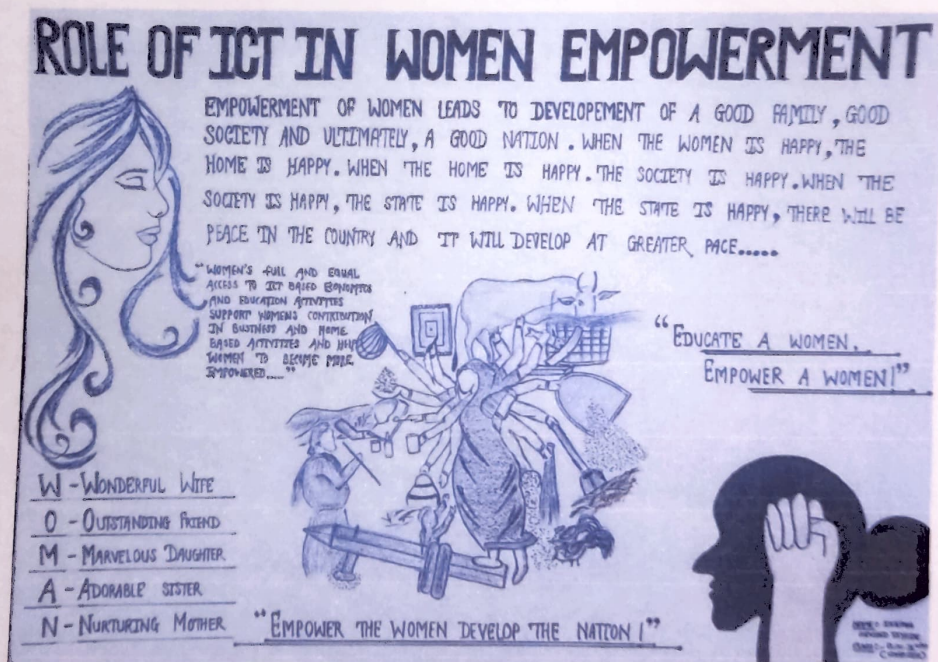 ROLE OF ICT IN WOMEN EMPOWERMENT
EMPOWERMENT OF WOMEN LEADS TO DEVELOPEMENT OF A GOOD FAMILY, GOOD
SOCIETY AND ULTIMATELY, A GOOD NATION. WHEN THE WOMEN IS HAPPY, THE
HOME IS HAPPY. WHEN THE HOME IS HAPPY. THE SOCIETY IS HAPPY. WHEN THE
SOCIETY IS HAPPY, THE STATE IS HAPPY. WHEN THE STATE IS HAPPY, THERE WILL BE
PEACE IN THE COUNTRY AND IT WILL DEVELOP AT GREATER PACE.....
"WOMEN'S FULL AND EQUAL
ACCESS TO ICT BASED ECONOMICS
AND EDUCATION ACTIVITIES
SUPPORT WOMENS CONTRIBUTION
IN BUSINESS AND HOME
BASED ACTIVITIES AND HELP
WOMEN TO BECOME MORE
EMPOWERED....."
"EDUCATE A WOMEN.
EMPOWER A WOMEN!"
W - WONDERFUL WIFE
O - OUTSTANDING FRIEND
M - MARVELOUS DAUGHTER
A - ADORABLE SISTER
N - NURTURING MOTHER
"EMPOWER THE WOMEN DEVELOP THE NATION!"